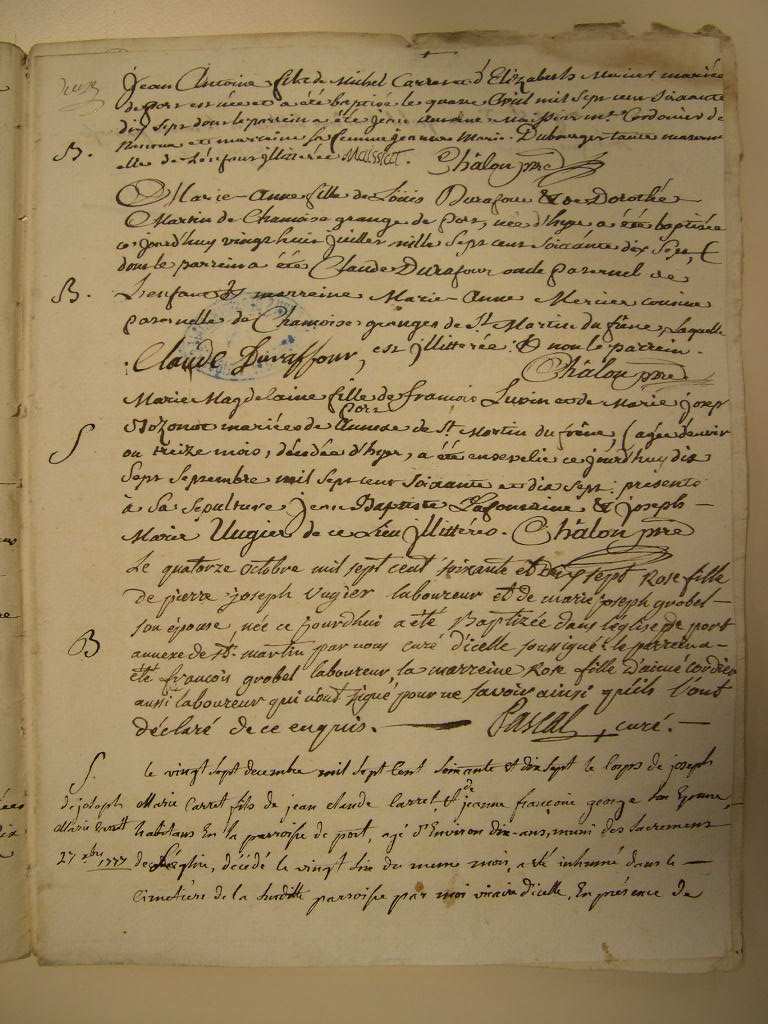 Jean Antoine fils de Michel Carret et d'Elizabeth Mercier mariés
de port est née et a été baptisé le quatre Avril mil sept cent soixante
dix sept dont le parrein a été Jean Antoine Maissiat mt. Cordonier de
et marreine sa femme jeanne Marie Dubourget tante mater
B. elle de L'enfant jllitterée Maissiat. Châlon ptre
Marie-Anne fille de Loüis Durafour & de Dorothé
Martin de Chamoise grange de port, née d'hyer, a été baptisée
ce jourd'huy vingt huit juillet mille sept cent soixante dix sept,
dont le parrein a été Claude Durafour oncle paternel de
B. L'enfant & marreine Marie-Anne Mercier cousine
paternelle de Chamoise granges de St Martin du frêne, Laquelle
Claude Duraffour, est jllitterée & non le parrein.
Châlon ptre
Marie Magdelaine fille de françois Luvin et de Marie josep
mariés de port Annexe de St. Martin du frêne, agée d'envir
S on treize mois, décedée d'hyer, a été ensevelie ce jourd'huy dix
sept septembre mil sept cent soixante et dix sept: présents
à sa sepulture jean Baptiste & joseph
Marie Vugier de ce Lieu jllittérés. Châlon ptre
Le quatorze octobre mil sept cent soixante et dix sept Rose fille
de pierre joseph vugier laboureur et de marie joseph grobel
son épouse, née ce jourdhui a été Baptizée dans l'église de port
B annexe de St. martin par nous curé d'icelle soussigné: le parrein a
été françois grobel laboureur, la marreine Rose fille d'aimé cordier
aussi laboureur qui n'ont signé pour ne savoir ainsi qu'ils l'ont
déclaré de ce enquis. Pascal, curé.
S. le vingt sept decembre mil sept Cent soixante et dix sept le Corps de joseph
de joseph Marie Carret fils de jean claude Carret et de jeanne françoise george son Epouse,
Marie Carret habitans En la parroisse de port, agé d'Environ dix ans, muni des sacremens
27 xbre 1777 de l'Eglise, décédé le vingt six du meme mois, a été inhumé dans le
Cimetière de la susditte parroisse par moi vicaire d'icelle, En présence de